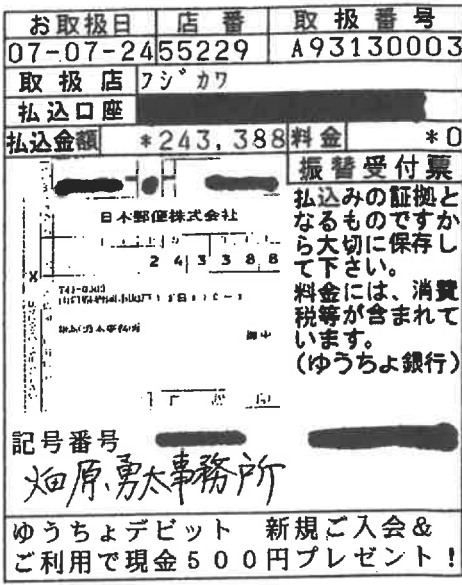 お取扱日 店番 取扱番号
07-07-24 55229 A93130003
取扱店 フジカワ
払込口座
払込金額 *243,388 料金 *0
振替受付票
払込みの証拠と
なるものですか
ら大切に保存し
て下さい。
料金には、消費
税等が含まれて
います。
(ゆうちょ銀行)
日本郵便株式会社
243388
御中
記号番号
畑原勇太事務所
ゆうちょデビット 新規ご入会&
ご利用で現金500円プレゼント!